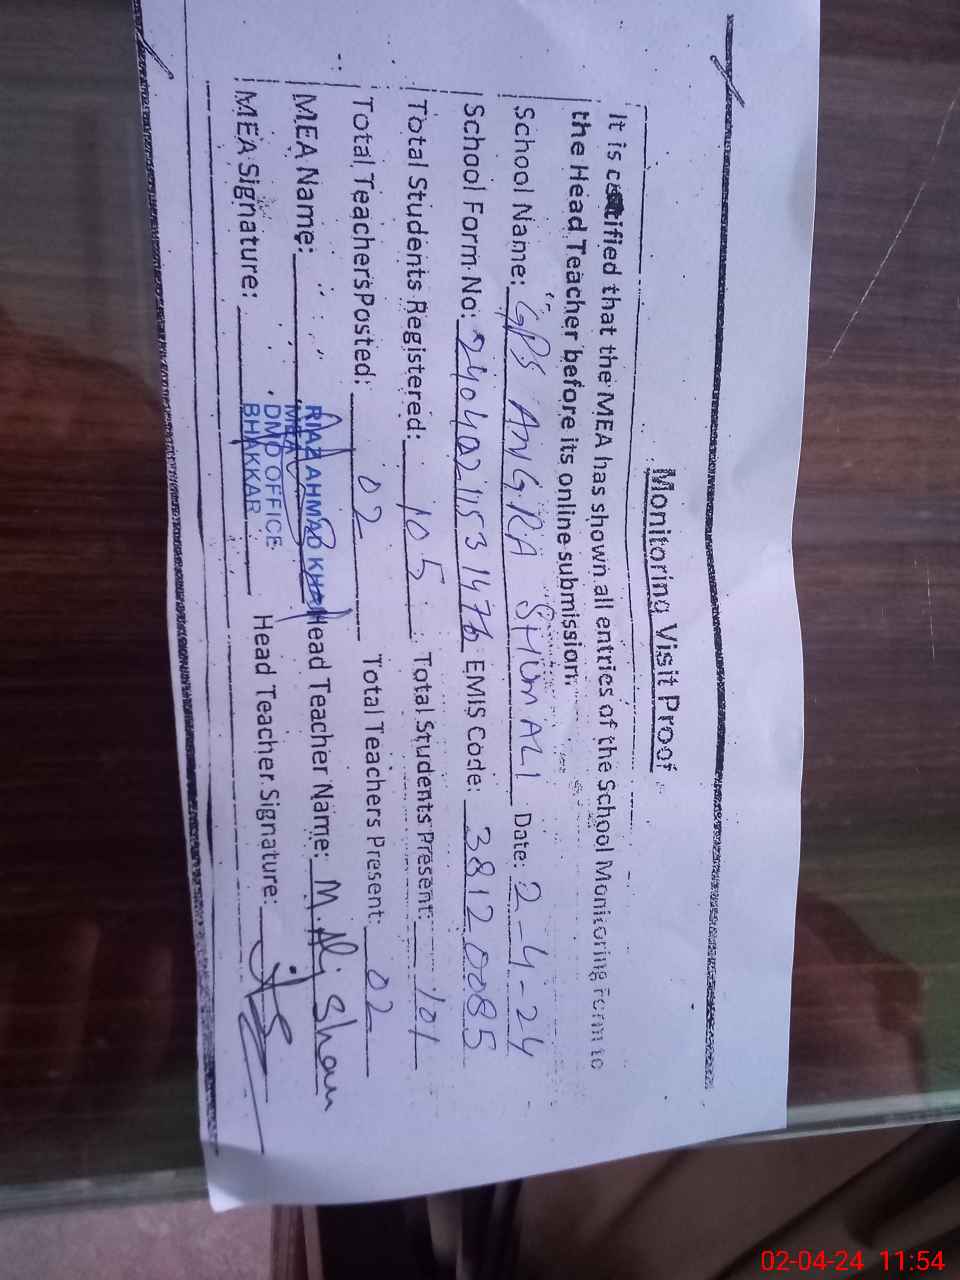 Monitoring Visit Proof
It is certified that the MEA has shown all entries of the School Monitoring Form to
the Head Teacher before its online submission.
School Name: GPS ANGRA SHUMALI Date: 2-4-24
School Form No: EMIS Code: 38120085
Total Students Registered: 105 Total Students Present: 101
Total Teachers Posted: 02 Total Teachers Present: 02
MEA Name: RIAZ AHMAD KHAN Head Teacher Name: M. Ali Shan
MEA
MEA Signature: DMO OFFICE Head Teacher Signature:
BHAKKAR
02-04-24 11:54